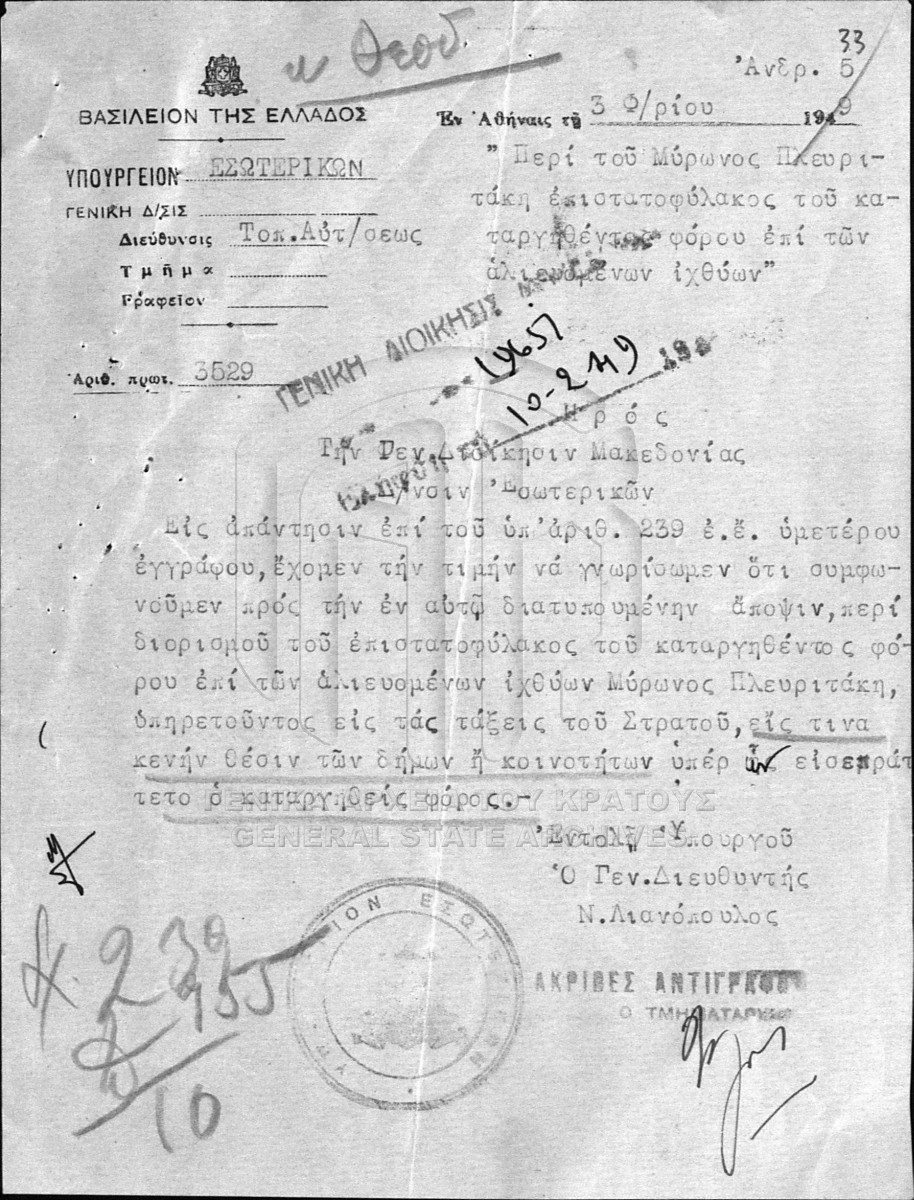 33
κ Θεοδ
Ἀνδρ. 5
ΒΑΣΙΛΕΙΟΝ ΤΗΣ ΕΛΛΑΔΟΣ
Ἐν Ἀθήναις τῇ 3 Φ/ρίου 1949
ΥΠΟΥΡΓΕΙΟΝ ΕΣΩΤΕΡΙΚΩΝ
ΓΕΝΙΚΗ Δ/ΣΙΣ
Διεύθυνσις Τοπ.Αὐτ/σεως
Τμῆμα
Γραφεῖον
Ἀριθ. πρωτ. 3529
"Περί τοῦ Μύρωνος Πλευρι-
τάκη ἐπιστατοφύλακος τοῦ κα-
ταργηθέντος φόρου ἐπί τῶν
ἁλιευομένων ἰχθύων"
ΓΕΝΙΚΗ ΔΙΟΙΚΗΣΙΣ
19651
10-2-49 194
Πρός
Τήν Γεν.Διοίκησιν Μακεδονίας
Δ/νσιν Ἐσωτερικῶν
Εἰς ἀπάντησιν ἐπί τοῦ ὑπ'ἀριθ. 239 ἐ.ἔ. ὑμετέρου
ἐγγράφου,ἔχομεν τήν τιμήν νά γνωρίσωμεν ὅτι συμφω-
νοῦμεν πρός τήν ἐν αὐτῷ διατυπουμένην ἄποψιν,περί
διορισμοῦ τοῦ ἐπιστατοφύλακος τοῦ καταργηθέντος φό-
ρου ἐπί τῶν ἁλιευομένων ἰχθύων Μύρωνος Πλευριτάκη,
ὑπηρετοῦντος εἰς τάς τάξεις τοῦ Στρατοῦ,εἴς τινα
κενήν θέσιν τῶν δήμων ἤ κοινοτήτων ὑπέρ ὧν εἰσεπράτ
τετο ὁ καταργηθείς φόρος.-
ΓΕΝΙΚΑ ΑΡΧΕΙΑ ΤΟΥ ΚΡΑΤΟΥΣ
GENERAL STATE ARCHIVES
Ἐντολῇ Ὑπουργοῦ
Ὁ Γεν.Διευθυντής
Ν.Λιανόπουλος
ΑΚΡΙΒΕΣ ΑΝΤΙΓΡΑΦΟΝ
Ο ΤΜΗΜΑΤΑΡΧΗΣ
239
155
10